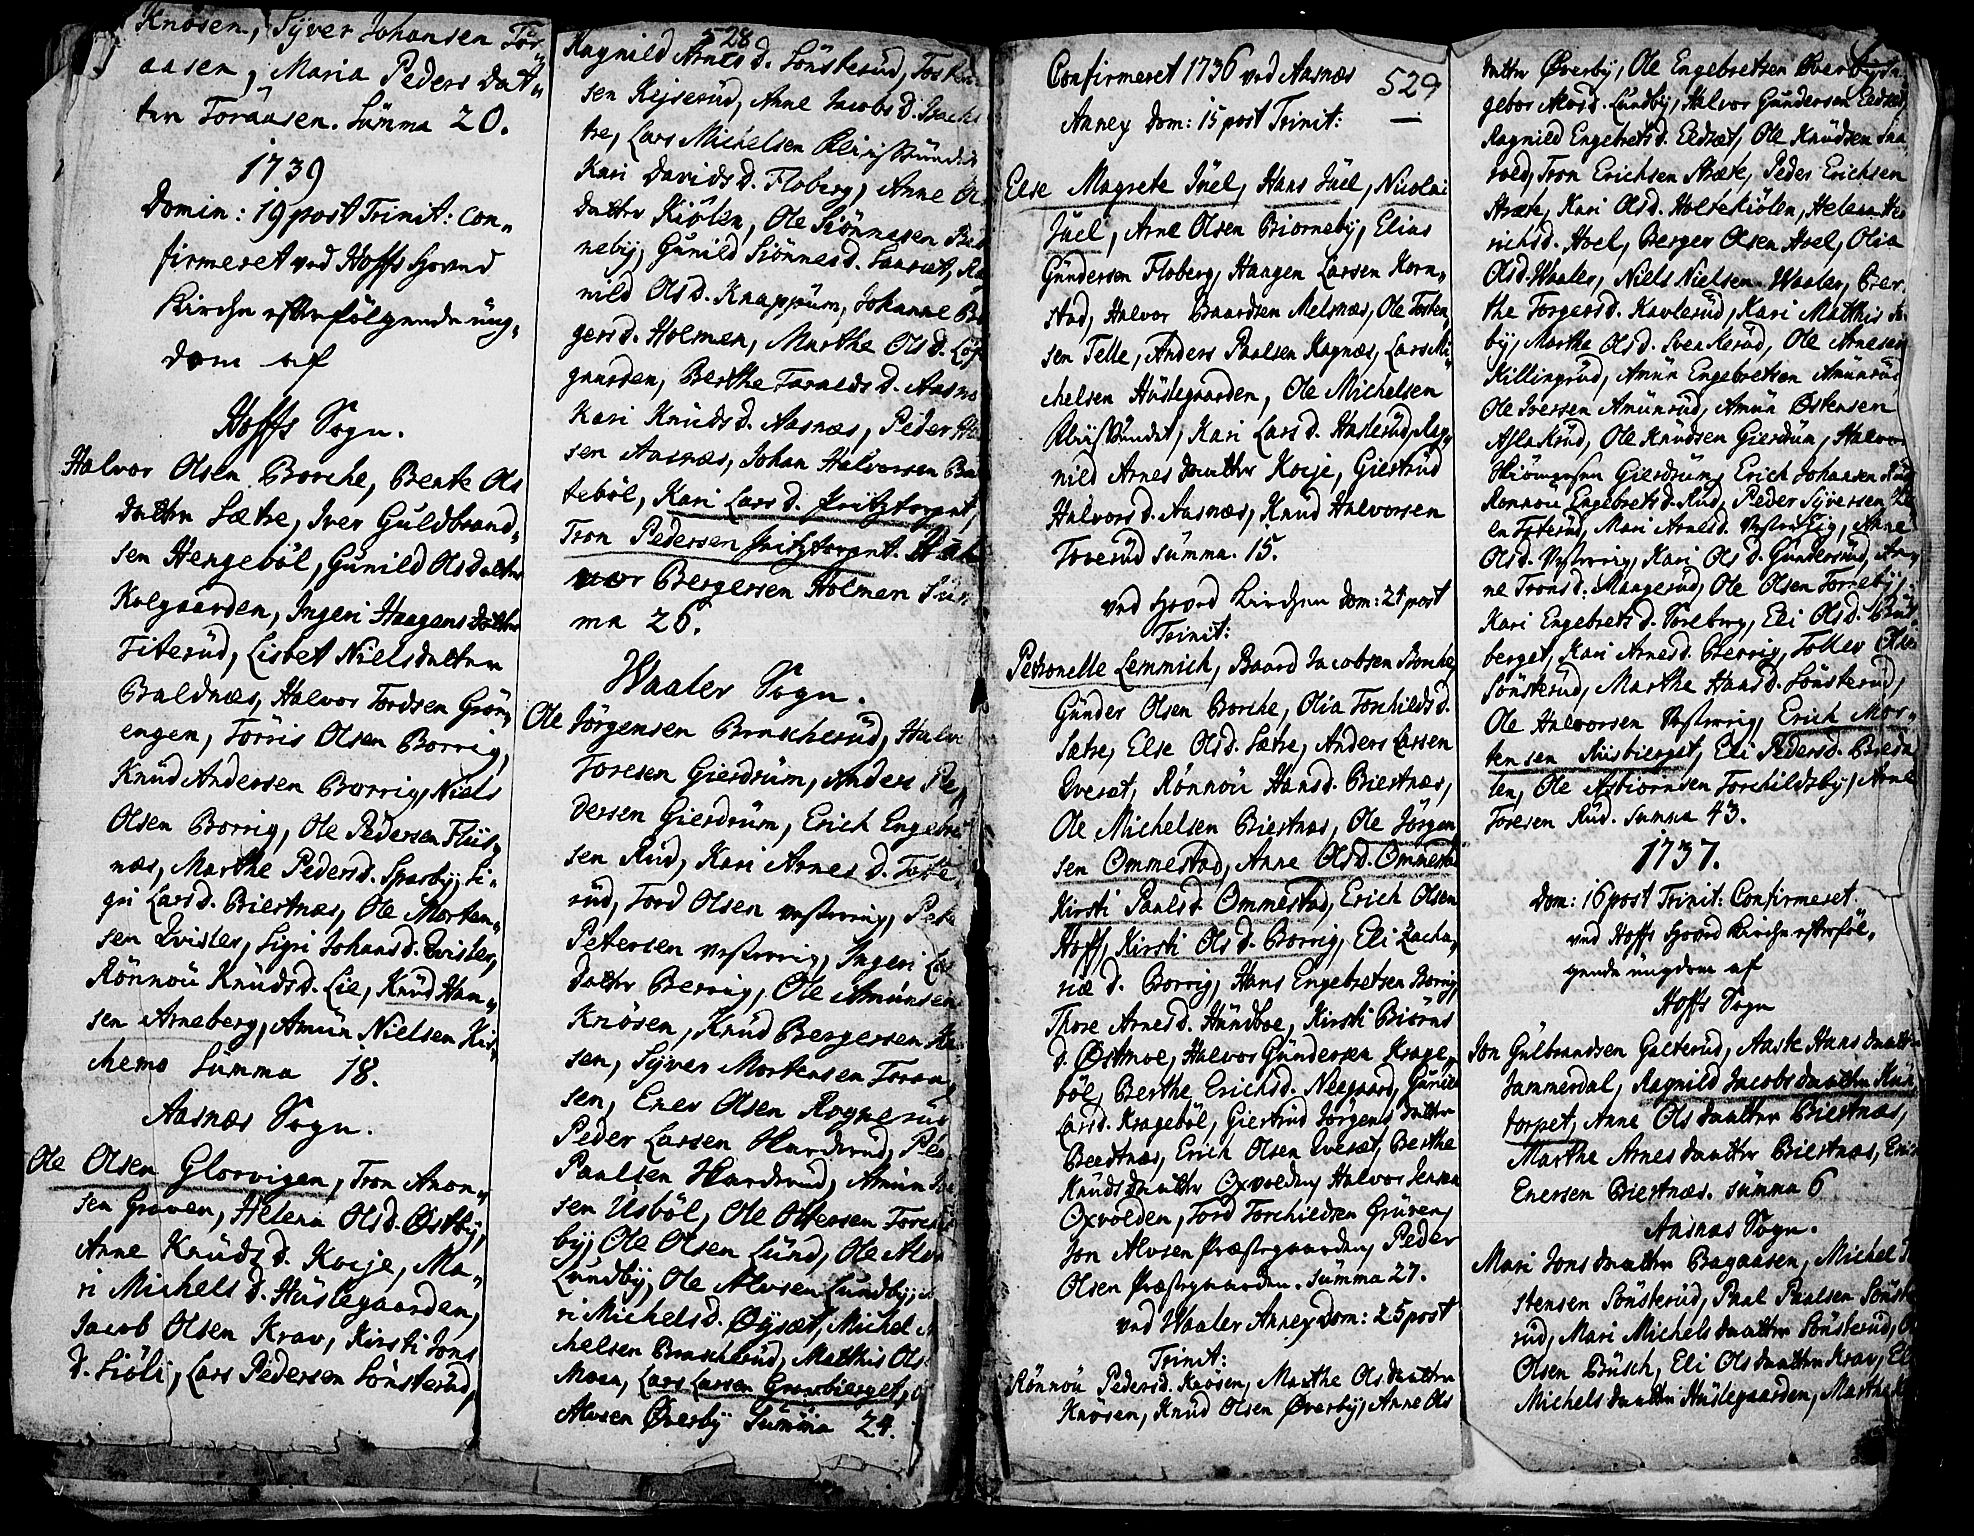 Knösen, Syver Johansen Tor-
aasen, Maria Peders dat-
ter Toraasen. Summa 20.
1739
Domin: 19 post Trinit: con-
firmeret ved Hoffs Hoved
Kirche efterfölgende ung-
dom af
Hoffs Sogn.
Halvor Olsen Borche, Beate Ols
datter Sætre, Iver Guldbrand-
sen Hengeböl, Gunild Olsdatter
Kolgaarden, Ingeri Haagensdatter
Titerud, Lisbet Nielsdatter
Baldnæs, Halvor Tordsen Grön-
engen, Törris Olsen Borrig,
Knud Andersen Borrig, Niels
Olsen Borrig, Ole Pedersen Flüs-
næs, Marthe Pedersd. Sparby, Si-
gri Larsd. Biestnæs, Ole Morten-
sen Qvisler, Sigri Johansd. Qvisler,
Rönnou Knudsd. Lie, Knud Han-
sen Arneberg, Amün Nielsen Kir-
chemo Summa 18.
Aasnæs Sogn.
Ole Olsen Glorvigen, Tron Aron-
sen Graven, Helena Olsd. Östby,
Anne Knudsd. Koije, Ma-
ri Michelsd. Huslegaarden,
Jacob Olsen Krav, Kirsti Jons
d. Siöli, Lars Pedersen Sönsterud,
528
Ragnild Arnesd. Sönsterud, Tosten
sen Rejserud, Anne Jacobsd. Bach
tre, Lars Michelsen
Kari Davidsd. Floberg, Anne Ol
datter Kiölen, Ole Siönnesen
neby, Gunild Siönnesd. Saaræt, Ra
nild Olsd. Knappum, Johanne Be
gersd. Holmen, Marthe Olsd. Löf
gaarden, Berthe Taraldsd. Aasnæ
Kari Knudsd. Aasnæs, Peder
sen Aasnæs, Johan Halvorsen
teböl, Kari Larsd. fritztorpet,
Tron Pedersen fritztorpet. Hal
vor Bergersen Holmen Sum
ma 26.
Waaler Sogn.
Ole Jörgensen Brascherud, Halv
Toresen Gierdrum, Anders Pe
dersen Gierdrum, Erich Engebre
sen Rud, Kari Arnesd. Toste
rud, Tord Olsen Vestvrig, Pete
Petersen Vestvrig, Ingeri
datter Berrig, Ole Amunsen
Knösen, Knud Bergersen
sen, Syver Mortensen Toraa
sen, Ener Olsen Rognerud
Peder Larsen Harderud, Pe
Paulsen Harderud, Amun
sen Usböl, Ole Ottersen
by, Ole Olsen Lund, Ole Alv
Lundby, Ole Alvsen Lundby,
ri Michelsd. Öysæt, Michel
chelsen Brascherud, Matthis Ols
Moen, Lars Larsen Gravbierget,
Alvsen Överby Summa 24.
Confirmeret 1736 ved Aasnæs 529
Annex Dom: 15 post Trinit:
Else Magrete Juel, Hans Juel, Nicolai
Juel, Arne Olsen Biorneby, Elias
Gundersen Floberg, Haagen Larsen Korn-
stad, Halvor Baardsen Melsnæs, Ole Tosten-
sen Telle, Anders Paulsen Kagnæs, Lars Mi-
chelsen Huslegaarden, Ole Michelsen
Kari Larsd. Haslerud, Rag-
nild Arnes datter Koije, Giertrud
Halvorsd. Aasnæs, Knud Halvorsen
Toverud summa. 15.
ved Hoved Kirchen dom: 21 post
Trinit:
Petronelle Lemmich, Baard Jacobsen Borche,
Gunder Olsen Borche, Olia Torchildsd.
Sætre, Else Olsd. Sætre, Anders Larsen
Qvesæt, Rönnou Hansd. Biestnæs,
Ole Michelsen Biestnæs, Ole Jörgen
sen Ommestad, Anne Olsd. Ommestad
Kirsti Paulsd. Ommestad, Erich Olsen
Hoff, Kirsti Olsd. Borrig, Eli Zacha-
riæ d. Borrig, Hans Engebretsen Borrig,
Thore Arnesd. Hundboe, Kirsti Biörns
d. Östmoe, Halvor Gundersen Krage-
böl, Berthe Erichsd. Neegaard, Gunild
Larsd. Krageböl, Giertrud Jörgens datter
Beedtnæs, Erich Olsen Qvesæt, Berthe
Knudsdaatter Oxvolden, Halvor Jensen
Oxvolden, Tord Torchildsen Gruven,
Jon Alvsen Præstegaarden, Peder
Olsen Præstegaarden. Summa 27.
ved Waaler Annex dom: 25 post
Trinit:
Rönnou Pedersd. Knösen, Marthe Ols daatter
Knösen, Knud Olsen Överby, Anne Ols
datter Överby, Ole Engebretsen Överby,
gebor Alvsd. Lundby, Halvor Gundersen Eedsæt,
Ragnild Engebretsd. Eldsæt, Ole Knudsen
vold, Tron Erichsen Stræte, Peder Erichsen
Stræte, Kari Olsd. Holtekiölen, Helena
richsd. Hoel, Berger Olsen Hoel, Olia
Olsd. Waaler, Niels Nielsen Waaler, Ber-
the Torgersd. Kavlerud, Kari Matthis
by, Marthe Olsd. Svenkerud, Ole Arnesen
Killingrud, Amun Engebretsen Amunrud
Ole Iversen Amunrud, Amun Östensen
Aslakrud, Ole Knudsen Gierdrum, Halvor
Gierdrum, Erich Johansen Rud
Ronnou Engebretsd. Rud, Peder Syversen
Mari Arnesd. Anne
Olsd. Vestvrig, Kari Olsd. Gundersrud, An-
ne Tronsd. Mangerud, Ole Olsen Torreby,
Kari Engebretsd. Toreberg, Eli Olsd.
berget, Kari Arnesd. Berrig, Tollev Olsen
Sönsterud, Marthe Hansd. Sönsterud,
Ole Halvorsen Vestvrig, Erich Mor-
tensen Riisbierget, Eli Pedersd. Breda
len, Ole Asbiornsen Torchildsby, Arne
Toresen Rud. Summa 43.
1737.
Dom: 16 post Trinit: Confirmeret
ved Hoffs Hoved Kirche efterföl-
gende ungdom af
Hoffs Sogn
Jon Gulbrandsen Galterud, Aaste Hans daatter
Jammerdal, Ragnild Jacobs daatter
torpet, Anne Ols daatter Biestnæs,
Marthe Arnes daatter Biestnæs,
Enersen Biestnæs. Summa 6
Aasnæs Sogn.
Mari Jons daatter Bagaasen, Michel
stensen Sönsterud, Paul Paulsen Sönste
rud, Mari Michels daatter Sönsterud,
Olsen Busch, Eli Ols daatter Krav,
Michels daatter Huslegaarden, Marthe